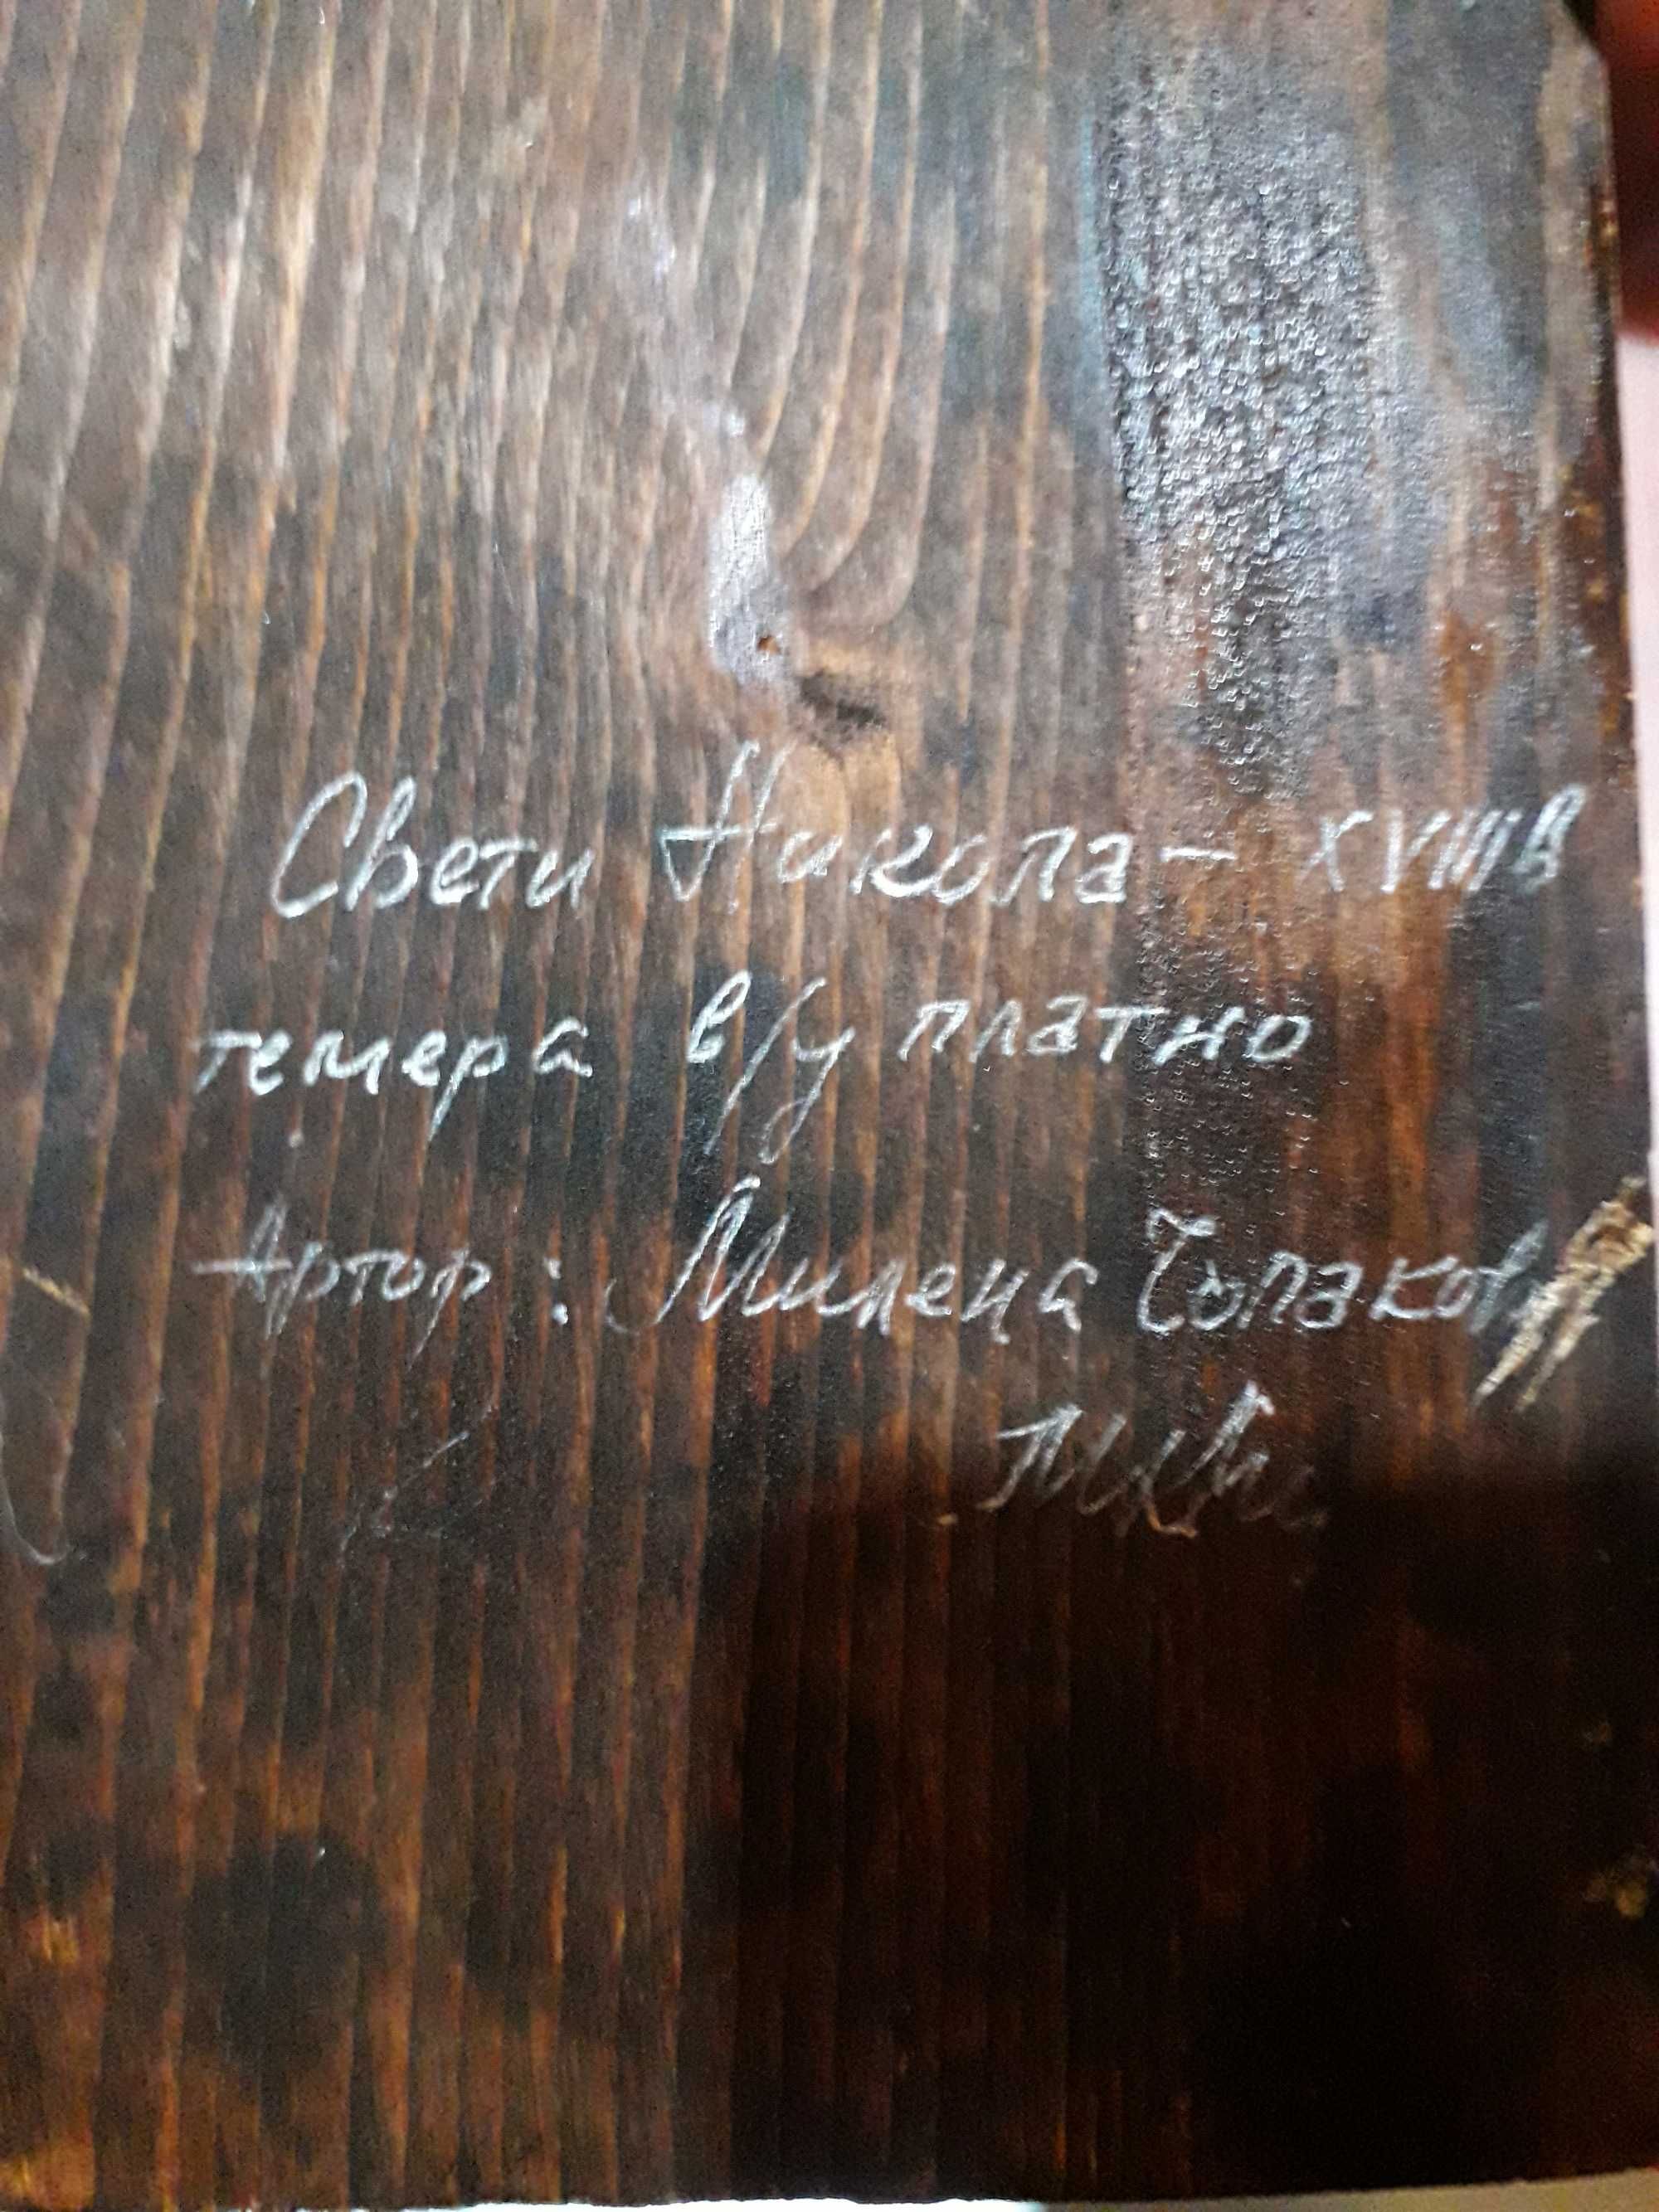 Свети Никола – XVIIIв
темера в/у платно
Артор: Милена